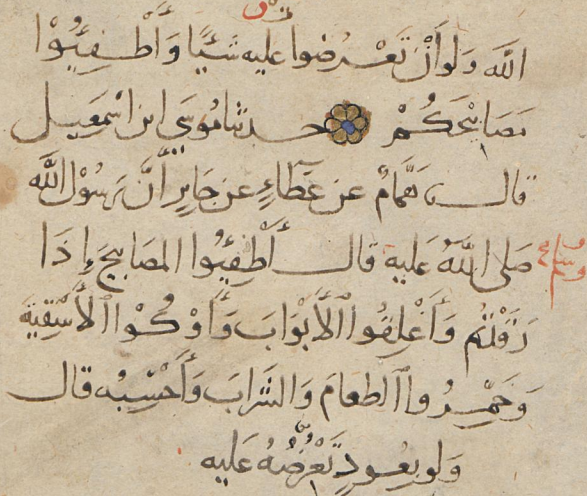 الله ولو أن تعرضوا عليه شيئا وأطفئوا
مصابيحكم حدثنا موسى ابن اسمعيل
قال همام عن عطاء عن جابر أن رسول الله
صلى الله عليه قال أطفئوا المصابيح إذا
رقدتم وأغلقوا الأبواب وأوكوا الأسقية
وخمروا الطعام والشراب وأحسبه قال
ولو بعود تعرضه عليه